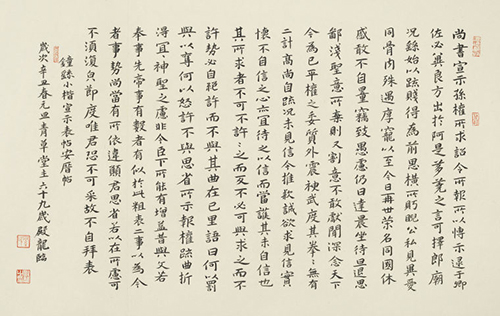 尚書宣示孫權所求詔令所報所以博示逮于卿
佐必冀良方出於阿是芻蕘之言可擇郎廟
況繇始以疏賤得為前恩橫所盱睨公私見異愛
同骨肉殊遇厚寵以至今日再世榮名同國休
慼敢不自量竊致愚慮仍日達晨坐待旦退思
鄙淺聖意所棄則又割意不敢獻聞深念天下
今為已平權之委質外震神武度其拳々無有
二計高尚自疏況未見信今推款誠欲求見信實
懷不自信之心亦宜待之以信而當護其未自信也
其所求者不可不許々之而反不必可與求之而不
許勢必自絕許而不與其曲在己里語曰何以罰
與以奪何以怒許不與思省所示報權疏曲折
得宜宜神聖之慮非今臣下所能有增益昔與文若
奉事先帝事有數者有似於此粗表二事以為今
者事勢尚當有所依違願君思省若以在所慮可
不須復皃節度唯君恐不可采故不自拜表
鍾繇小楷宣示表帖安厝帖
歲次辛丑春元旦青草堂主六十九歲殿龍臨